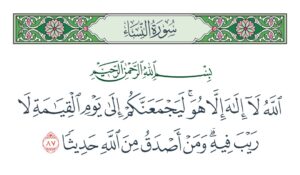 سُورَةُ النِّسَاءِ
بِسْمِ اللَّهِ الرَّحْمَٰنِ الرَّحِيمِ
اللَّهُ لَا إِلَٰهَ إِلَّا هُوَ ۚ لَيَجْمَعَنَّكُمْ إِلَىٰ يَوْمِ الْقِيَامَةِ لَا
رَيْبَ فِيهِ ۗ وَمَنْ أَصْدَقُ مِنَ اللَّهِ حَدِيثًا ٨٧